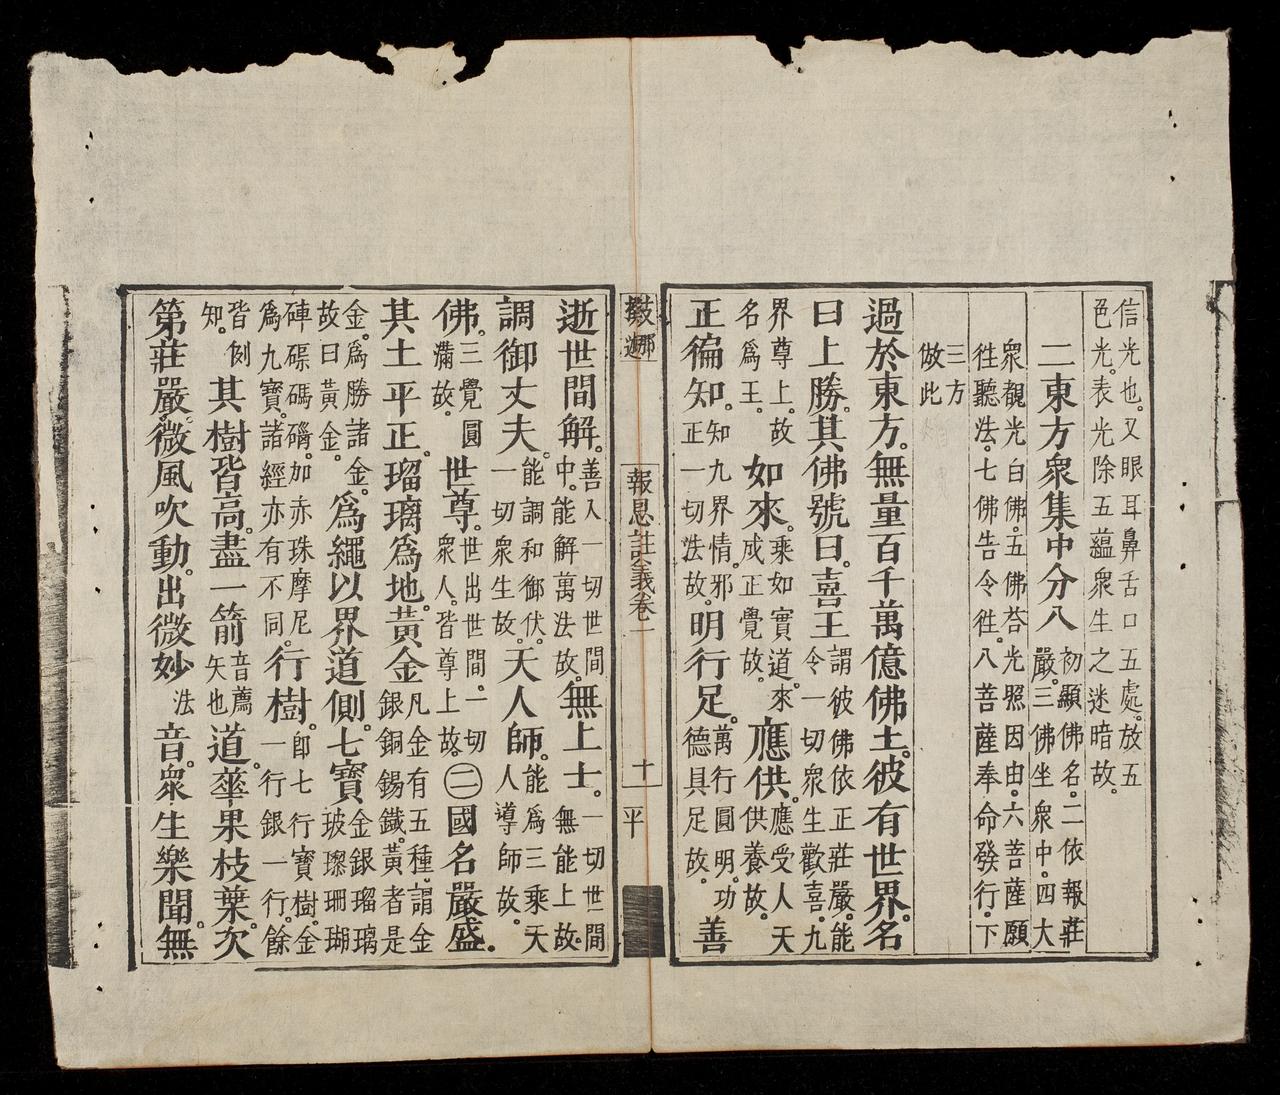 信光也。又眼耳鼻舌口五處。放五
色光。表光除五蘊衆生之迷暗故。
二東方衆集中分八初顯佛名。二依報莊嚴。三佛坐衆中。四大
衆觀光白佛。五佛荅光照因由。六菩薩願徃聽法。七佛告令徃。八菩薩奉命發行。下
三方倣此
過於東方。無量百千萬億佛土。彼有世界。名
曰上勝。其佛號曰。喜王謂彼佛依正莊嚴。能令一切衆生歡喜。九
界尊上。故名爲王。如來。乘如實道。來成正覺故。應供。應受人天供養故。
正徧知。知九界情。邪正一切法故。明行足。萬行圓明。功德具足故。善
報恩註義卷一 十 平
逝世間解。善入一切世間中。能解萬法故。無上士。一切世間無能上故。
調御丈夫。能調和御伏。一切衆生故。天人師。能爲三乘天人導師故。
佛。三覺圓滿故。世尊。世出世間。一切衆人。皆尊上故。㊁國名嚴盛。
其土平正。瑠璃爲地。黃金凡金有五種。謂金銀銅錫鐵。黃者是
金。爲勝諸金。故曰黃金。爲繩以界道側。七寶金銀瑠璃玻瓈珊瑚
硨磲碼碯。加赤珠摩尼。爲九寶。諸經亦有不同。行樹。卽七行寶樹。金一行銀一行。餘
皆例知。其樹皆高。盡一箭音薦矢也道。華果枝葉。次
第莊嚴。微風吹動。出微妙法音。衆生樂聞。無